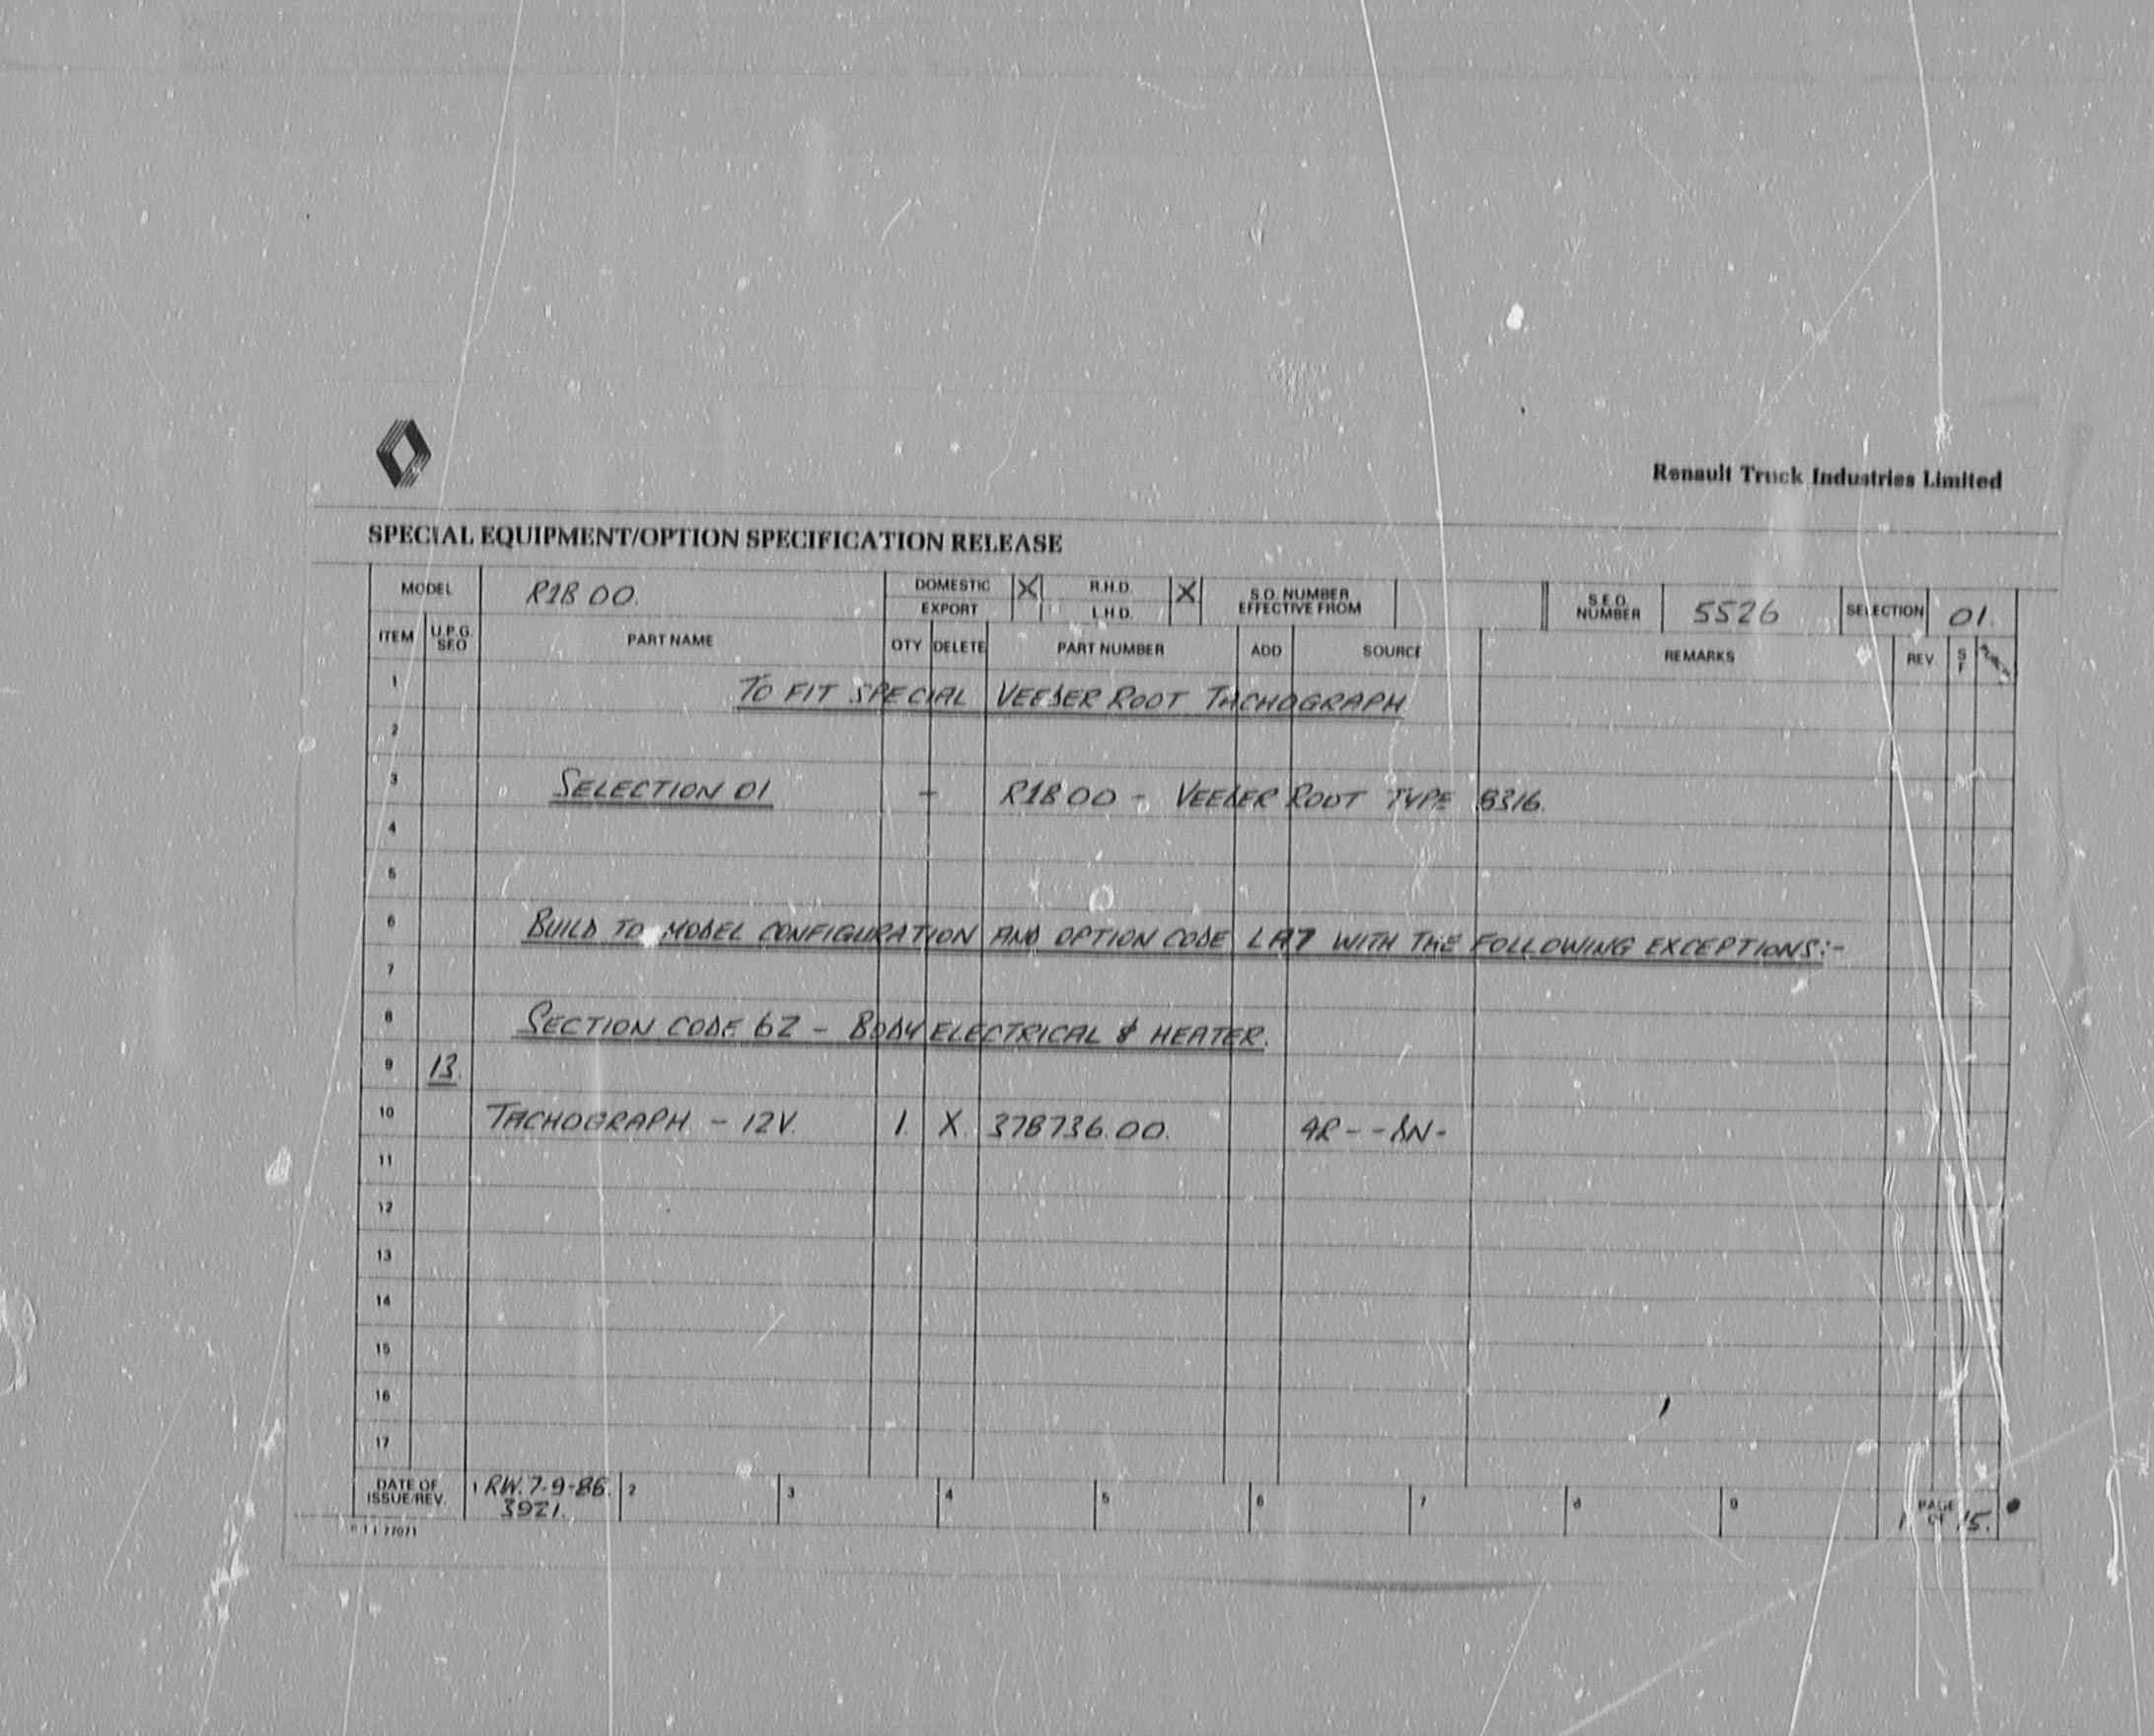 Renault Truck Industries Limited
SPECIAL EQUIPMENT/OPTION SPECIFICATION RELEASE
MODEL R1800. DOMESTIC X R.H.D. X S.O. NUMBER S.E.O. 5526 SELECTION 01.
EXPORT L.H.D. EFFECTIVE FROM NUMBER
ITEM U.P.G. SEO PART NAME QTY DELETE PART NUMBER ADD SOURCE REMARKS REV S F
1 TO FIT SPECIAL VEEDER ROOT TACHOGRAPH
2
3 SELECTION 01 - R1800 - VEEDER ROOT TYPE 8316.
4
5
6 BUILD TO MODEL CONFIGURATION AND OPTION CODE LA7 WITH THE FOLLOWING EXCEPTIONS:-
7
8 SECTION CODE 6Z - BODY ELECTRICAL & HEATER.
9 13.
10 TACHOGRAPH - 12V. 1. X. 378736.00. 4R--DN-
11
12
13
14
15
16
17
DATE OF ISSUE/REV. 1 RW. 7-9-86. 2 3 4 5 6 7 8 9 PAGE
3921. 1 OF 15.
27071